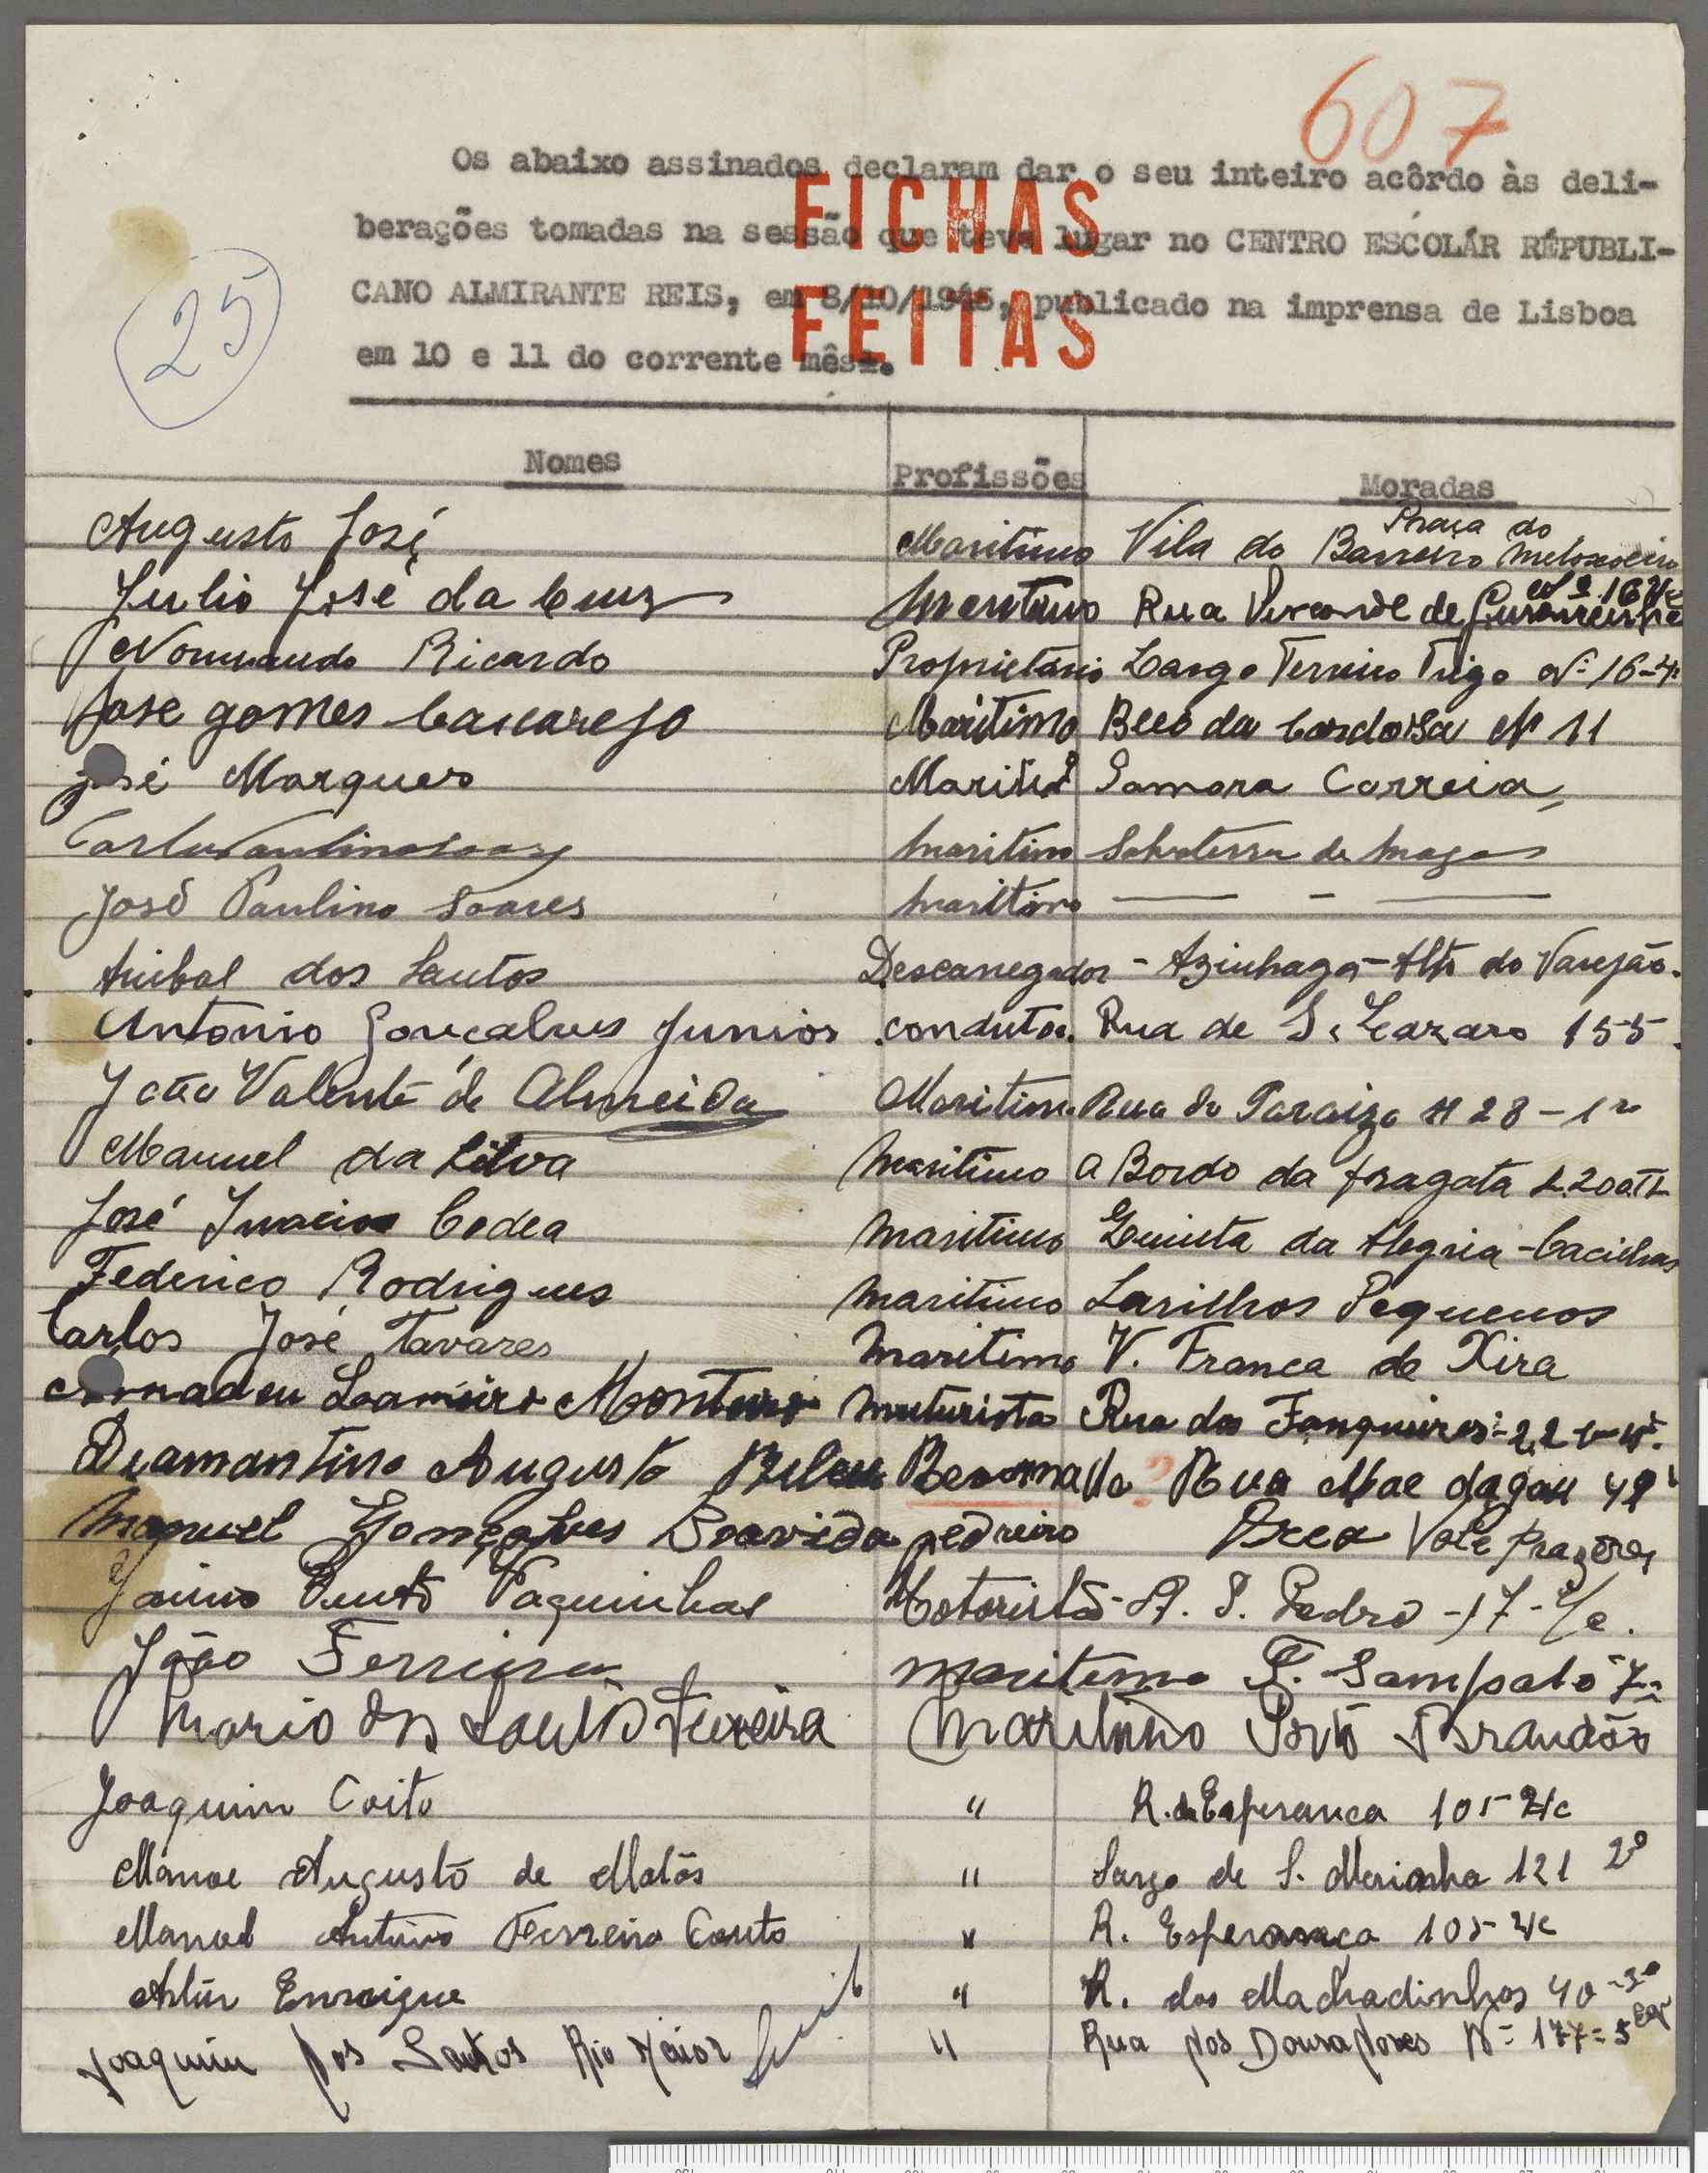 607
Os abaixo assinados declaram dar o seu inteiro acôrdo às deli-
berações tomadas na sessão que teve lugar no CENTRO ESCOLÁR RÉPUBLI-
CANO ALMIRANTE REIS, em 8/10/1945, publicado na imprensa de Lisboa
em 10 e 11 do corrente mês.
FICHAS
FEITAS
25
Nomes Profissões Moradas
Augusto José Maritimo Vila do Barreiro Praça do
Julio José da Cruz Maritimo Rua Visconde de
Normando Ricardo Proprietário Largo Terreiro Trigo Nº 16-4º
Jose gomes Cascarejo Maritimo Beco da Cardosa Nº 11
José Marques Samora Correia
Carlos Paulino Soares maritimo Salvaterra de Magos
José Paulino Soares maritimo — - —
Anibal dos Santos Descarregador - Azinhaga - Alto do Varejão.
Antonio Gonçalves Junior .condutor. Rua de S. Lazaro 155.
João Valente de Almeida Maritimo Rua do Paraizo Nº 28-1º
Manuel da Silva maritimo a Bordo da fragata
José Inacio Codea maritimo Quinta da Alegria - Cacilhas
Federico Rodrigues maritimo Sarilhos Pequenos
Carlos José Tavares maritimo V. Franca de Xira
Loameiro Monteiro muturista Rua dos Fanqueiros
Diamantino Augusto ? Rua Mae dagau 49
Manuel Gonçalves Boavida pedreiro Vale prazeres
Jaime Pinto Vaquinhas Motorista - R. S. Pedro - 17 - r/c.
João Ferreira maritemo T. Sampalo 7
Mario dos Santos Teixeira Maritimo Porto Brandão
Joaquim Coito " R. da Esperanca 105 r/c
Manoe Augusto de Matos " Largo de S. Marinha 121 2º
Manuel Antuno Ferreira Couto " R. Esperança 105 r/c
Artur Enrrique " R. dos Machadinhos 40-3º
Joaquim dos Santos Rio Maior " Rua dos Douradores Nº 177=5 Esq